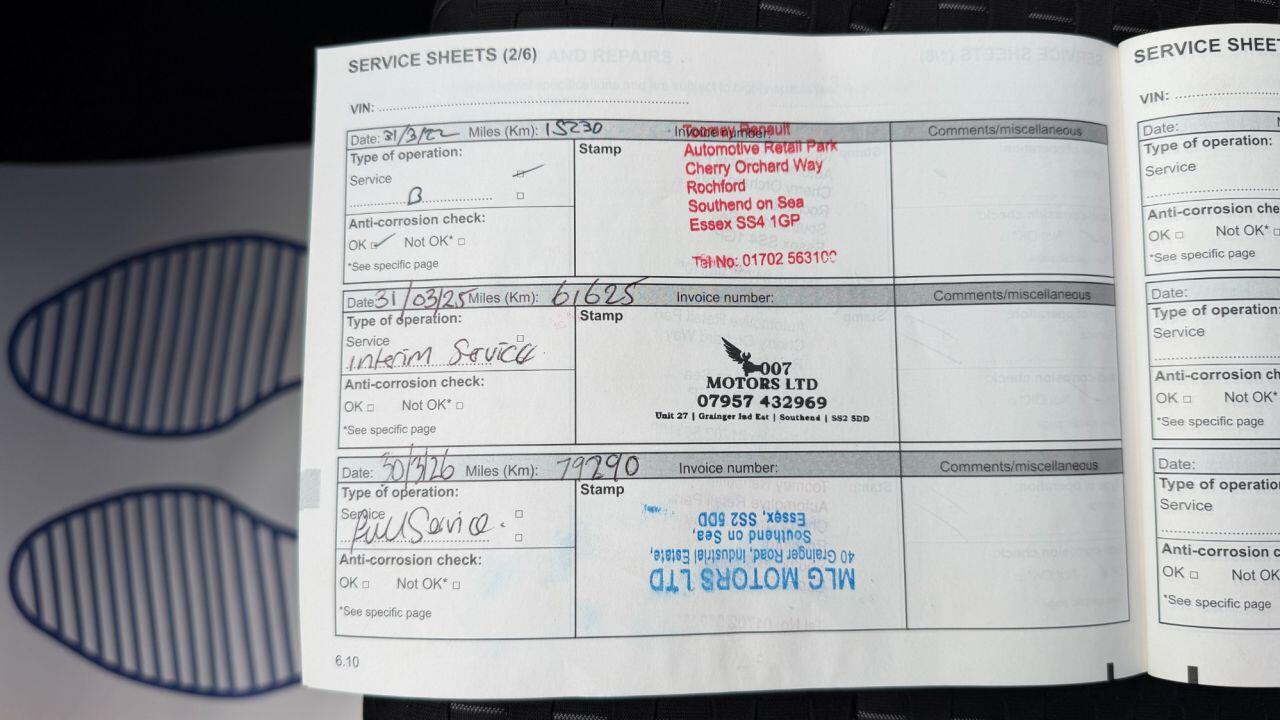 SERVICE SHEETS (2/6)
VIN:
Date: 31/3/22 Miles (Km): 15230 Invoice number: Comments/miscellaneous
Type of operation:
Service
B
Anti-corrosion check:
OK Not OK*
*See specific page
Stamp
Toomey Renault
Automotive Retail Park
Cherry Orchard Way
Rochford
Southend on Sea
Essex SS4 1GP
Tel No: 01702 563100
Date: 31/03/25 Miles (Km): 61625 Invoice number: Comments/miscellaneous
Type of operation:
Service
Interim Service
Anti-corrosion check:
OK Not OK*
*See specific page
Stamp
007
MOTORS LTD
07957 432969
Unit 27 | Grainger Ind Est | Southend | SS2 5DD
Date: 30/3/26 Miles (Km): 79290 Invoice number: Comments/miscellaneous
Type of operation:
Service
Full Service.
Anti-corrosion check:
OK Not OK*
*See specific page
Stamp
MLG MOTORS LTD
40 Grainger Road, Industrial Estate,
Southend on Sea,
Essex, SS2 5DD
6.10
SERVICE SHEET
VIN:
Date:
Type of operation:
Service
Anti-corrosion che
OK Not OK*
*See specific page
Date:
Type of operation:
Service
Anti-corrosion ch
OK Not OK*
*See specific page
Date:
Type of operatio
Service
Anti-corrosion c
OK Not OK
*See specific page